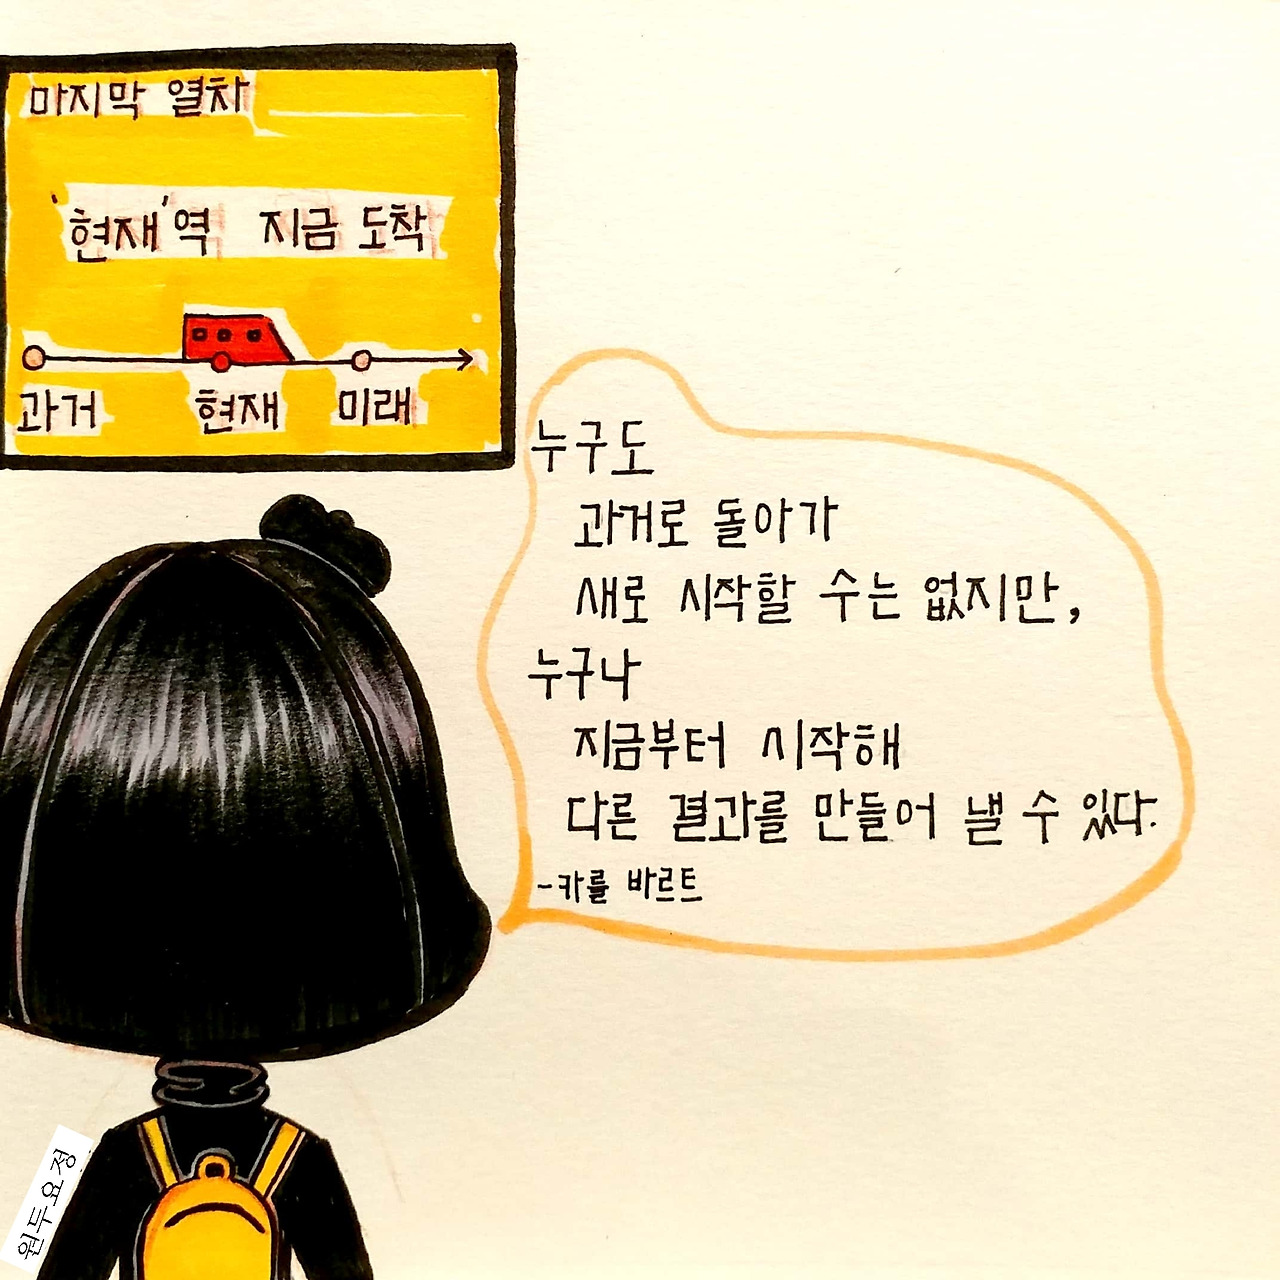 마지막 열차
'현재'역 지금 도착
과거 현재 미래
누구도
과거로 돌아가
새로 시작할 수는 없지만,
누구나
지금부터 시작해
다른 결과를 만들어 낼 수 있다.
-카를 바르트
원두요정